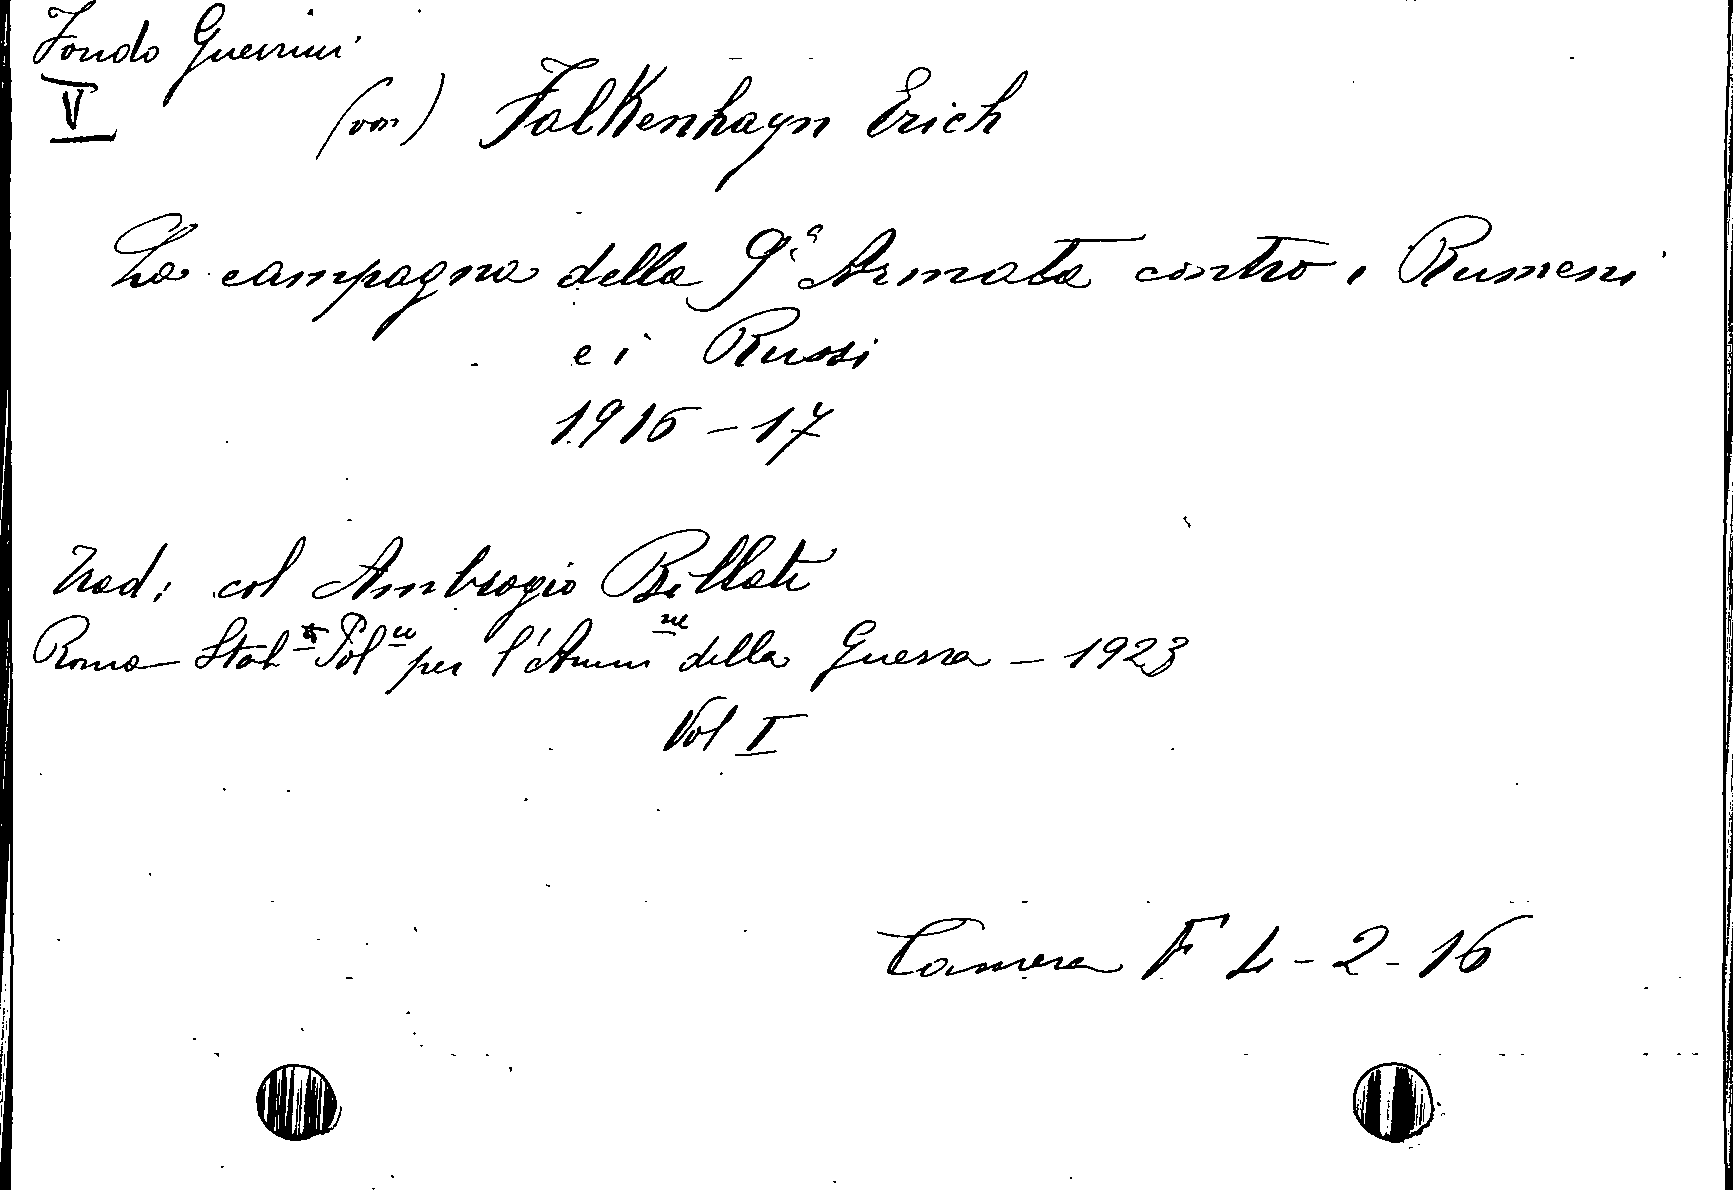 Fondo Guerrini
V
(von) Falkenhayn Erich
La campagna della 9ª Armata contro i Rumeni
e i Russi
1916-17
Trad: col Ambrogio Bollati
Roma - Stab.to Pol.co per l'Amm.ne della Guerra - 1923
Vol I
Camera F 4-2-16